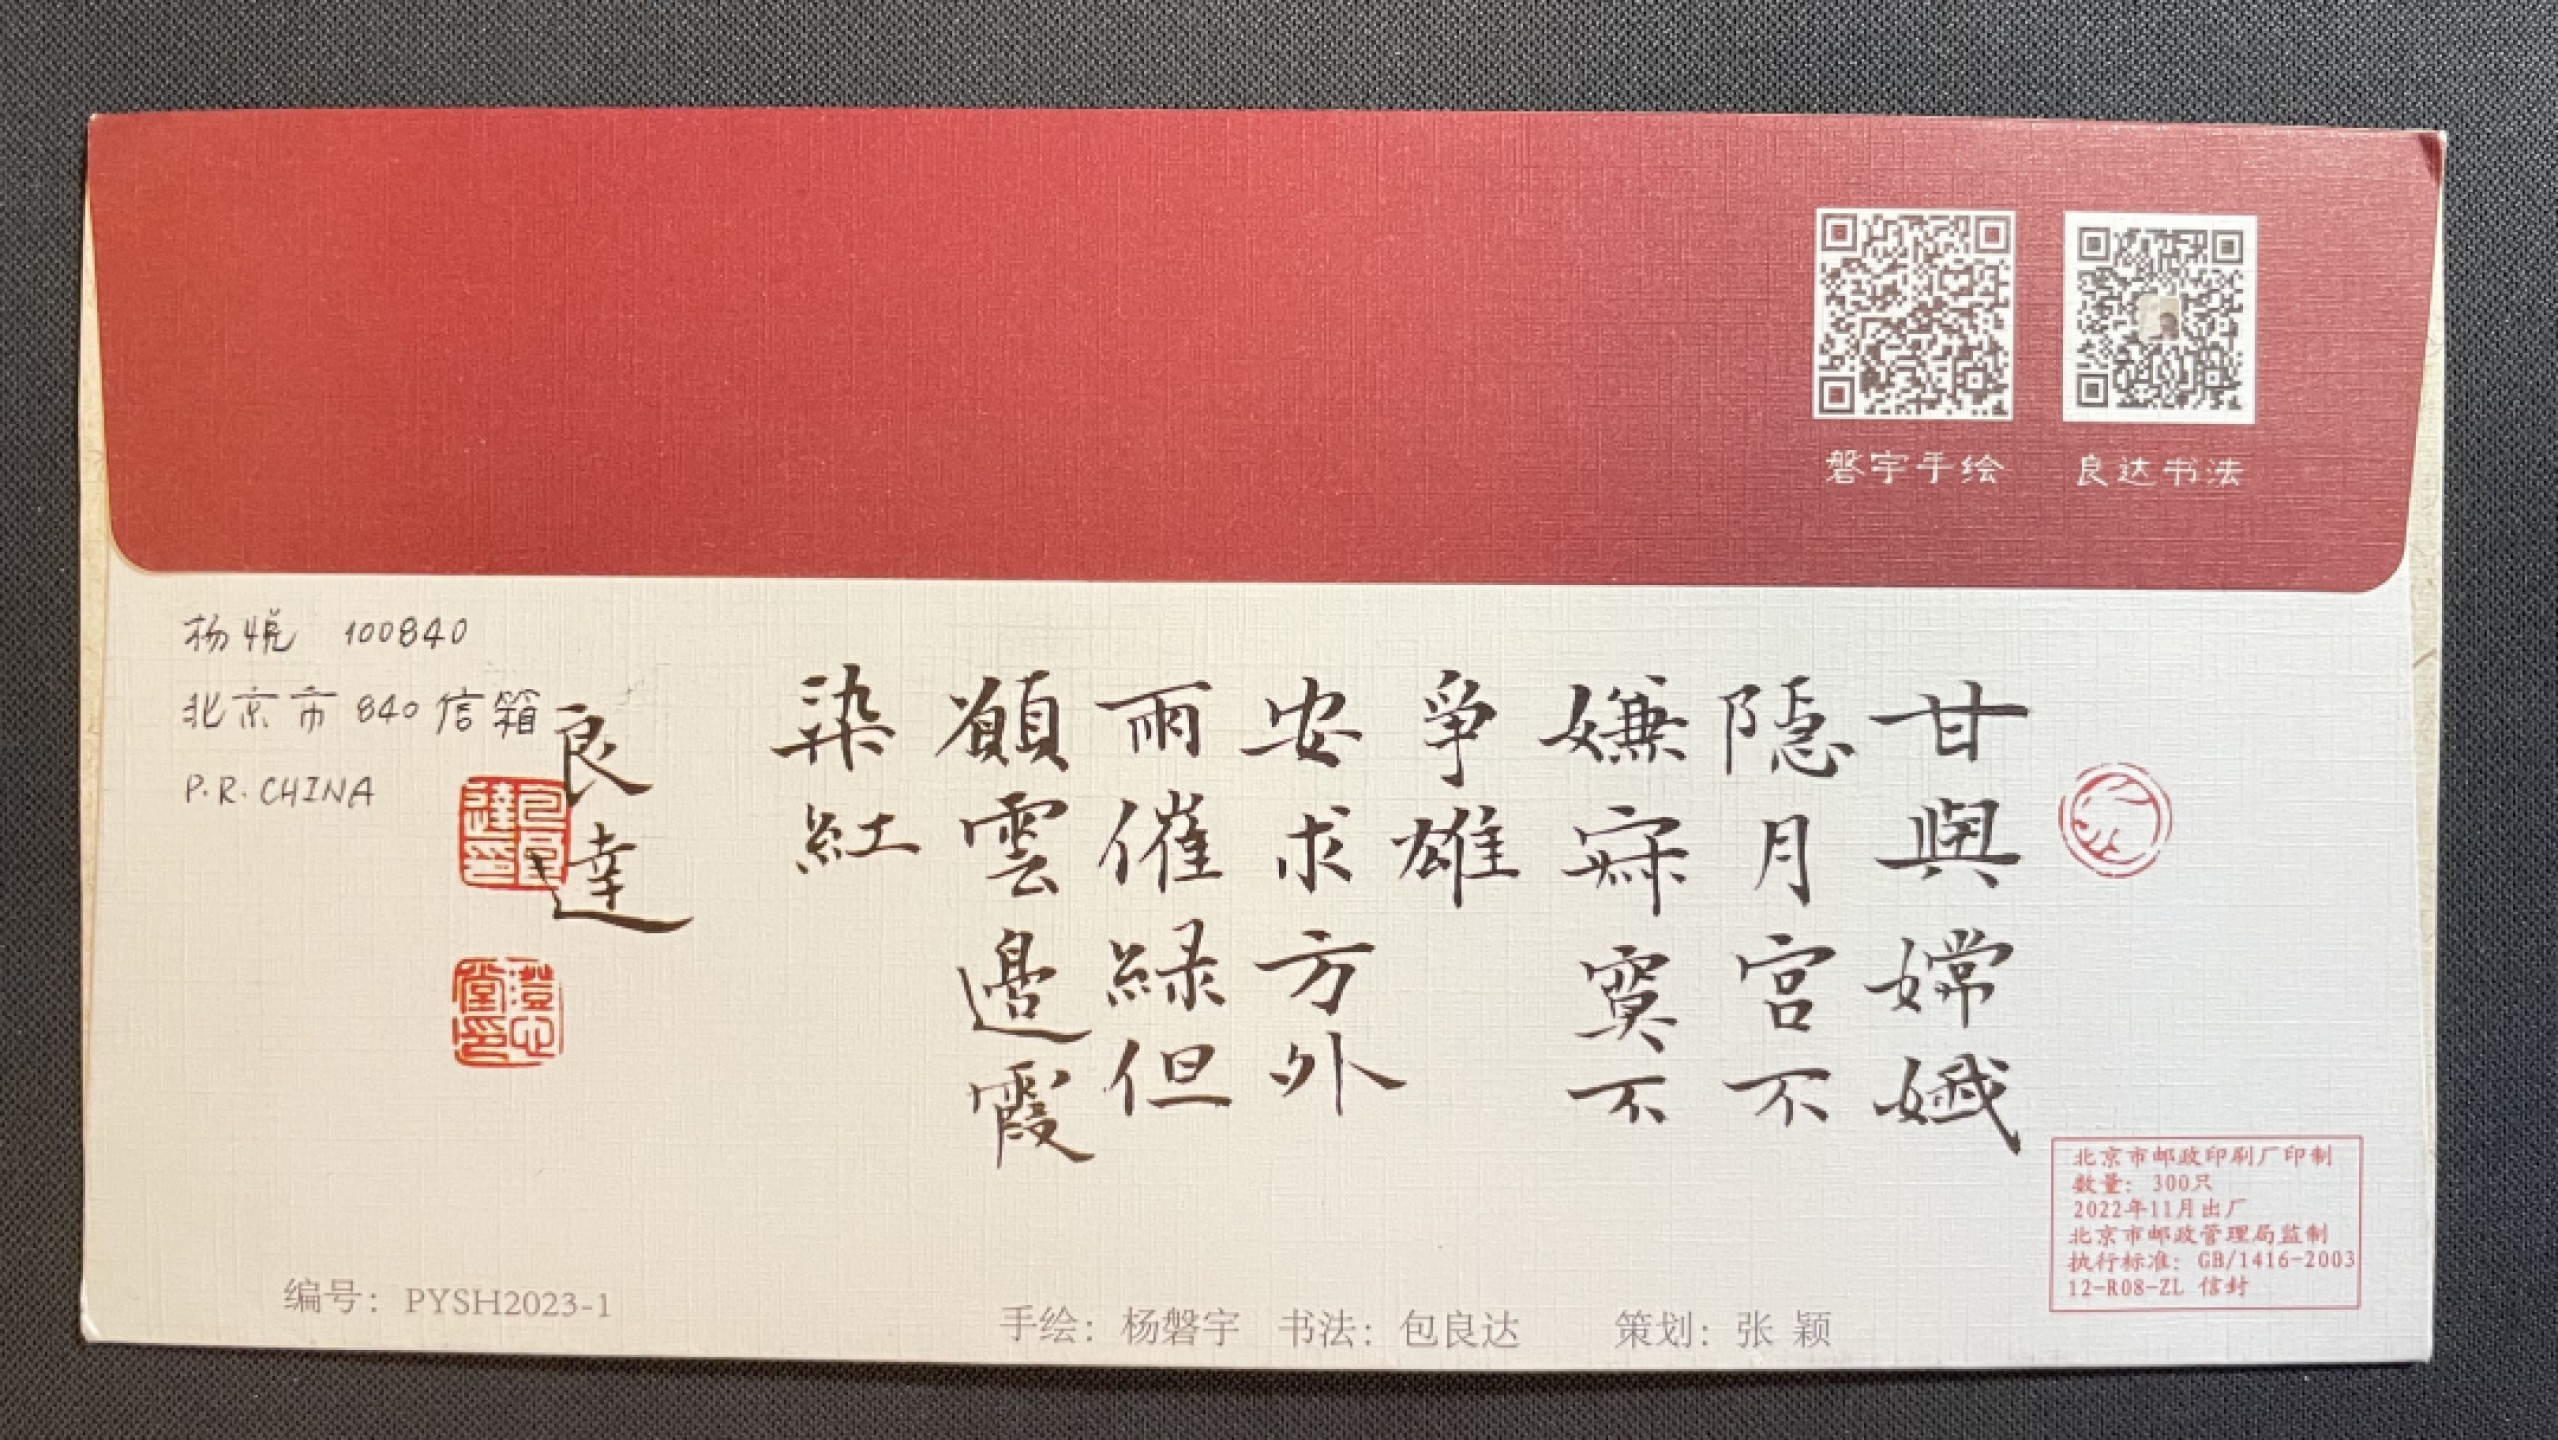 磐宇手绘
良达书法
杨悦 100840
北京市840信箱
P.R.CHINA
甘與嫦娥
隱月宮不
嫌寂寞不
爭雄
安求方外
雨催緑但
願雲邊霞
染紅
良達
包良達印
澄心堂印
北京市邮政印刷厂印制
数量：300只
2022年11月出厂
北京市邮政管理局监制
执行标准：GB/1416-2003
12-R08-ZL 信封
编号：PYSH2023-1
手绘：杨磐宇 书法：包良达 策划：张 颖